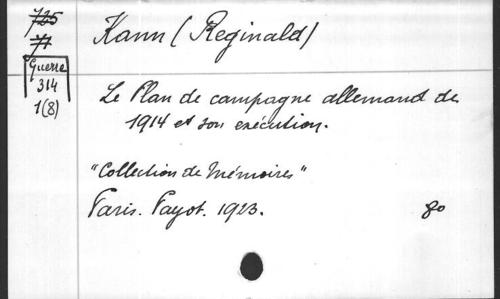 725
71
Guerre
314
1(8)
Kann (Reginald)
Le Plan de campagne allemand de
1914 et son exécution.
"Collection de Mémoires"
Paris. Payot. 1923. 8o